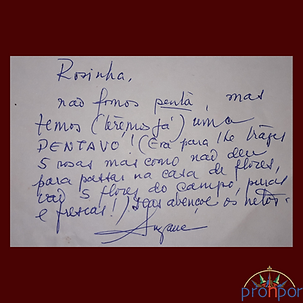 Rosinha,
não fomos penta, mas
temos (teremos já) uma
PENTAVÔ! (Era para lhe trazer
5 rosas mas como não deu
para passar na casa de flores,
vão 5 flores do campo, puras
e frescas!) abençoe os netos.
prohpor